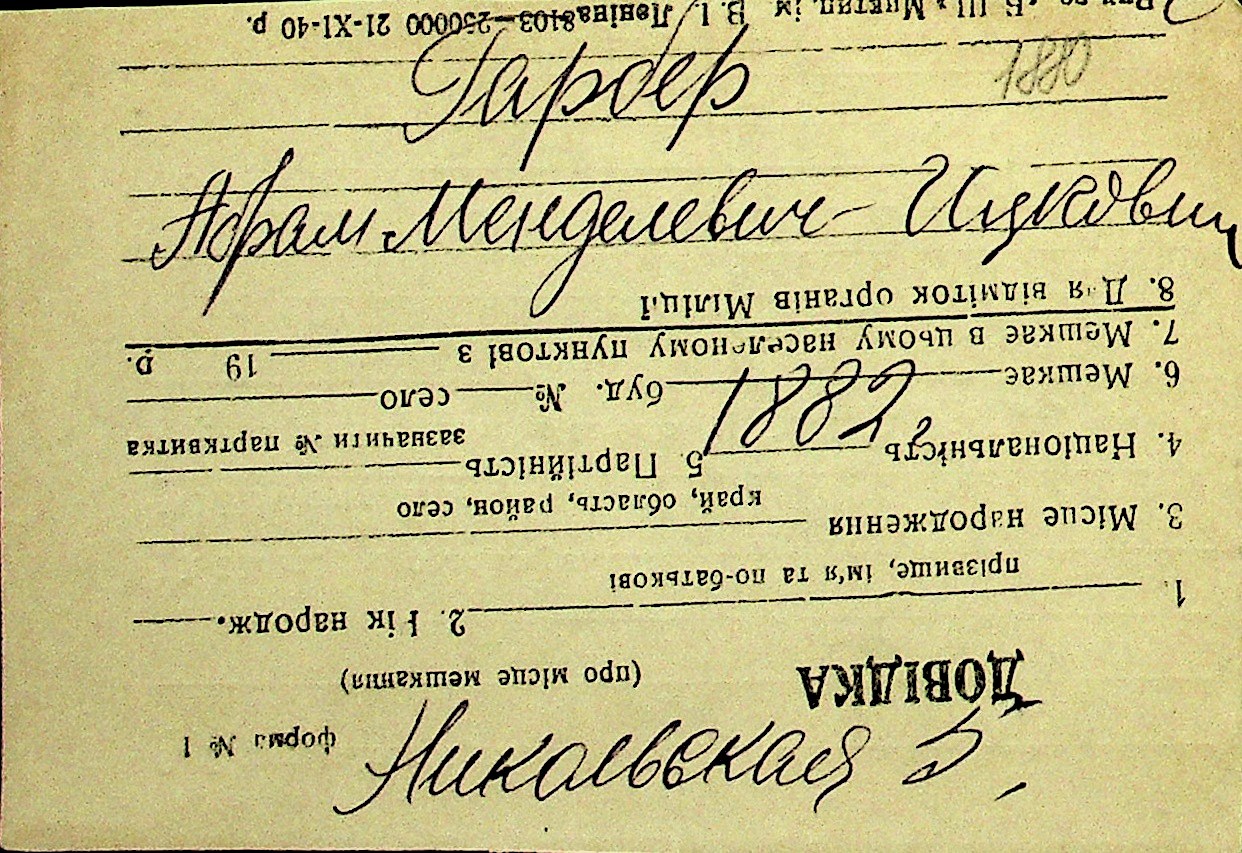 1880
Гарбер
Абрам Менделевич-Ицкович
1882
Никольская 5,
форма № 1
ДОВІДКА
(про місце мешкання)
1. 2. Рік народж.
прізвище, ім'я та по-батькові
3. Місце народження
край, область, район, село
4. Національність 5 Партійність
зазначити № партквитка
6. Мешкає буд. № село
7. Мешкає в цьому населеному пункті з 19 р.
8. Для відміток органів Міліції
ім. В. І. Леніна 8103—250000 21-XI-40 р.